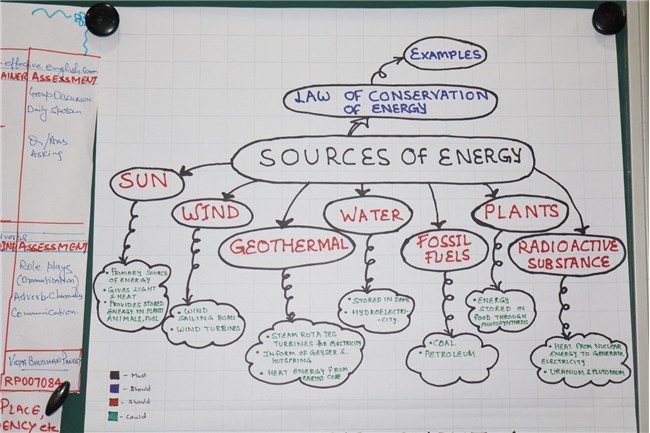 -effective english
AINER ASSESSMENT
Group Discussion
Daily Spoken
Qn/Ans
Asking
ASSESSMENT
Role plays
(Dramatisation)
Communication.
RP007084
PLACE,
ENCY etc
EXAMPLES
LAW OF CONSERVATION
OF ENERGY
SOURCES OF ENERGY
SUN
WIND
GEOTHERMAL
WATER
FOSSIL
FUELS
PLANTS
RADIOACTIVE
SUBSTANCE
• PRIMARY SOURCE
OF ENERGY
• GIVES LIGHT
& HEAT
• PROVIDES STORED
ENERGY IN PLANTS
ANIMALS, FUEL
• WIND
SAILING BOATS
• WIND TURBINES
• STEAM ROTATES
TURBINES for ELECTRICITY
• IN FORM OF GEYSER &
HOTSPRING
• HEAT ENERGY FROM
EARTHS CORE
• STORED IN DAMS
• HYDROELECTRI-
CITY.
• COAL
• PETROLEUM
• ENERGY
STORED IN
FOOD THROUGH
PHOTOSYNTHESIS
• HEAT FROM NUCLEAR
ENERGY TO GENERATE
ELECTRICITY
• URANIUM & PLUTONIUM
- Must
- Should
- Should
- Could